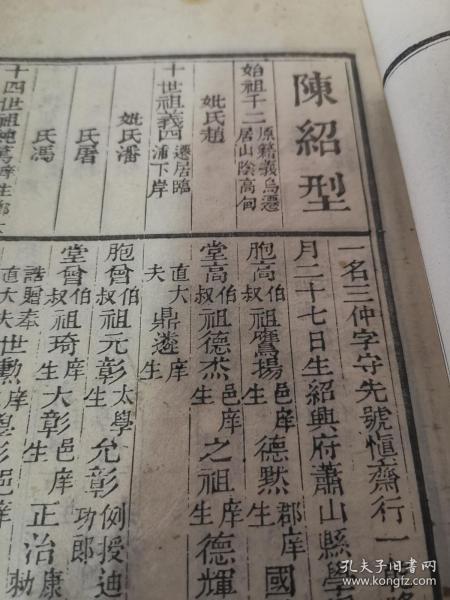 陳紹型
始祖千二原籍義烏遷居山陰高甸
妣氏趙
十世祖義四遷居臨浦下岸
妣氏潘
氏屠
氏馮
十四世祖
一名三仲字守先號慎齋行一
月二十七日生紹興府蕭山縣學
胞高伯叔祖鷹揚邑庠生德默郡庠生國
堂高伯叔祖德杰邑庠生之祖庠生德輝
直大夫鼎遴庠生
胞曾伯叔祖元彰太學生允彰例授迪功郎
堂曾伯叔祖琦庠生大彰邑庠生正治康
誥贈奉直大夫世勲庠生
勅
孔夫子旧书网
www.kongfz.com